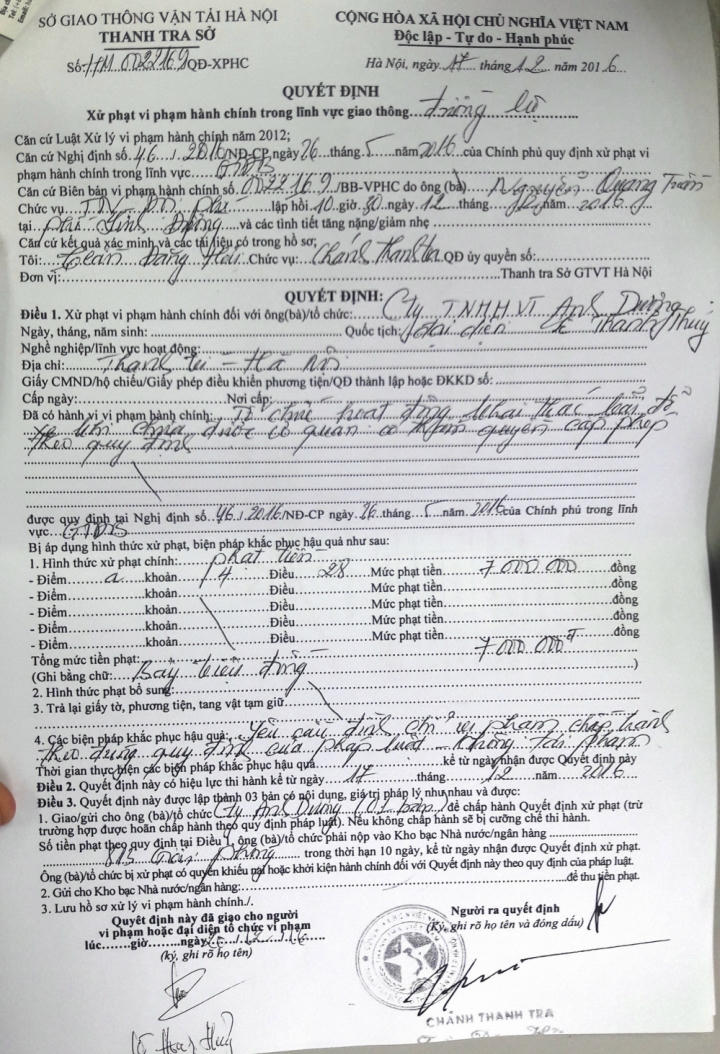 SỞ GIAO THÔNG VẬN TẢI HÀ NỘI
THANH TRA SỞ
Số: QĐ-XPHC
CỘNG HÒA XÃ HỘI CHỦ NGHĨA VIỆT NAM
Độc lập - Tự do - Hạnh phúc
Hà Nội, ngày 17 tháng 12 năm 2016
QUYẾT ĐỊNH
Xử phạt vi phạm hành chính trong lĩnh vực giao thông đường bộ
Căn cứ Luật Xử lý vi phạm hành chính năm 2012;
Căn cứ Nghị định số 46/2016/NĐ-CP ngày 26 tháng 5 năm 2016 của Chính phủ quy định xử phạt vi
phạm hành chính trong lĩnh vực GTĐB
Căn cứ Biên bản vi phạm hành chính số 0022169/BB-VPHC do ông (bà) Nguyễn Quang
Chức vụ lập hồi 10 giờ 30 ngày 12 tháng năm 2016
tại và các tình tiết tăng nặng/giảm nhẹ
Căn cứ kết quả xác minh và các tài liệu có trong hồ sơ;
Tôi: Trần Đăng Hải Chức vụ: Chánh Thanh tra QĐ ủy quyền số:
Đơn vị: Thanh tra Sở GTVT Hà Nội
QUYẾT ĐỊNH:
Điều 1. Xử phạt vi phạm hành chính đối với ông(bà)/tổ chức: Cty TNHH VT Ánh Dương
Ngày, tháng, năm sinh: Quốc tịch: đại diện Thanh Thúy
Nghề nghiệp/lĩnh vực hoạt động:
Địa chỉ: - Hà Nội
Giấy CMND/hộ chiếu/Giấy phép điều khiển phương tiện/QĐ thành lập hoặc ĐKKD số:
Cấp ngày: Nơi cấp:
Đã có hành vi vi phạm hành chính: Tổ chức hoạt động khai thác bãi đỗ
xe khi chưa được cơ quan có thẩm quyền cấp phép
theo quy định
được quy định tại Nghị định số 46/2016/NĐ-CP ngày 26 tháng 5 năm 2016 của Chính phủ trong lĩnh
vực GTĐB
Bị áp dụng hình thức xử phạt, biện pháp khắc phục hậu quả như sau:
1. Hình thức xử phạt chính: phạt tiền
- Điểm a khoản 4 Điều 28 Mức phạt tiền 7000.000 đồng
- Điểm khoản Điều Mức phạt tiền đồng
- Điểm khoản Điều Mức phạt tiền đồng
- Điểm khoản Điều Mức phạt tiền đồng
- Điểm khoản Điều Mức phạt tiền đồng
Tổng mức tiền phạt: 7000.000đ
(Ghi bằng chữ: Bảy triệu đồng )
2. Hình thức phạt bổ sung:
3. Trả lại giấy tờ, phương tiện, tang vật tạm giữ
4. Các biện pháp khắc phục hậu quả: Yêu cầu đình chỉ vi phạm chấp hành
theo đúng quy định của pháp luật - Không tái phạm
Thời gian thực hiện các biện pháp khắc phục hậu quả kể từ ngày nhận được Quyết định này
Điều 2. Quyết định này có hiệu lực thi hành kể từ ngày 17 tháng 12 năm 2016
Điều 3. Quyết định này được lập thành 03 bản có nội dung, giá trị pháp lý như nhau và được:
1. Giao/gửi cho ông (bà)/tổ chức Cty Ánh Dương (01 bản) để chấp hành Quyết định xử phạt (trừ
trường hợp được hoãn chấp hành theo quy định pháp luật). Nếu không chấp hành sẽ bị cưỡng chế thi hành.
Số tiền phạt theo quy định tại Điều 1, ông (bà)/tổ chức phải nộp vào Kho bạc Nhà nước/ngân hàng
trong thời hạn 10 ngày, kể từ ngày nhận được Quyết định xử phạt.
Ông (bà)/tổ chức bị xử phạt có quyền khiếu nại hoặc khởi kiện hành chính đối với Quyết định này theo quy định của pháp luật.
2. Gửi cho Kho bạc Nhà nước/ngân hàng: để thu tiền phạt.
3. Lưu hồ sơ xử lý vi phạm hành chính./.
Quyết định này đã giao cho người
vi phạm hoặc đại diện tổ chức vi phạm
lúc giờ ngày
(ký, ghi rõ họ tên)
Người ra quyết định
(Ký, ghi rõ họ tên và đóng dấu)
CHÁNH THANH TRA